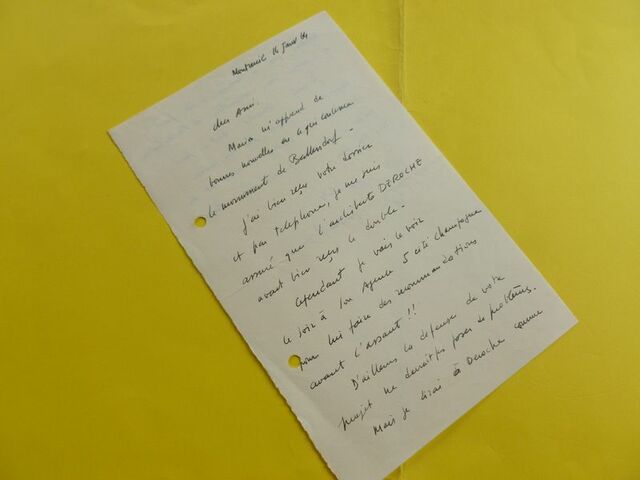 Montreuil 14 Janv 64
cher Ami.
Marin m'apprend de
bonnes nouvelles en ce qui concerne
le monument de Ballersdorf -
J'ai bien reçu votre dossier
et par telephone, je me suis
assuré que l'architecte DEROCHE
avait bien reçu le double -
Cependant je vais le voir
le soir à son Agence 5 cité Champagne
pour lui faire des recommandations
avant l'assaut !!
D'ailleurs la defense de votre
projet ne devrait pas poser de problèms.
Mais je dirai à Deroche comme